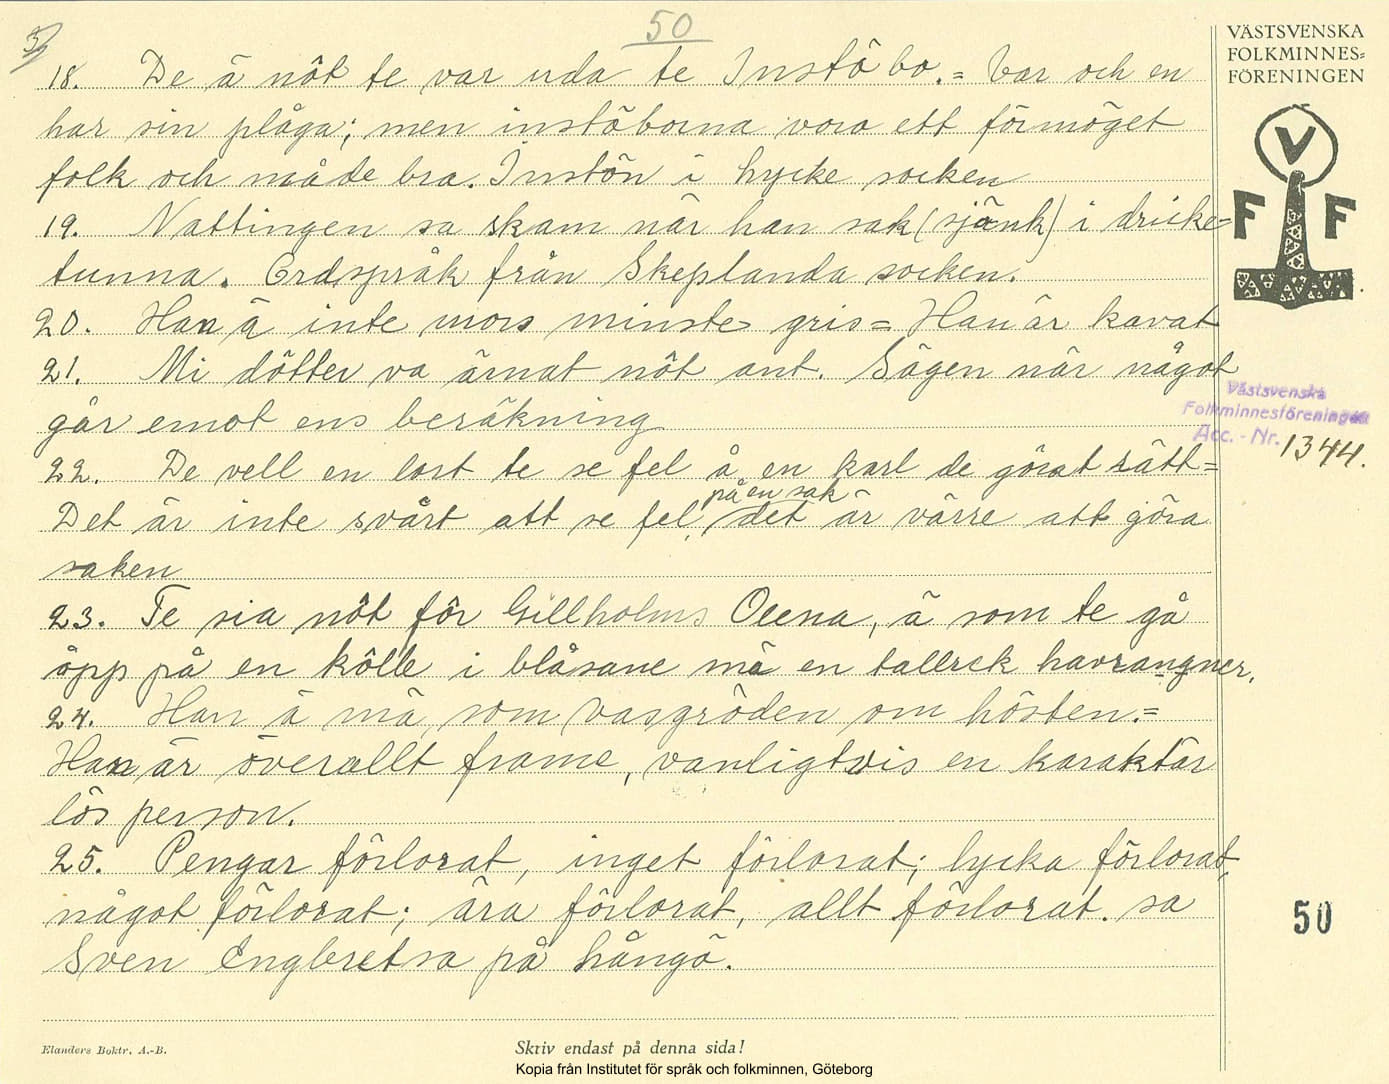 5/
50
VÄSTSVENSKA
FOLKMINNES=
FÖRENINGEN
V
F F
18. De ä nôt te var uda te Instöbo. = Var och en
har sin plåga; men instöborna voro ett förmöget
folk och måde bra. Instön i Lycke socken
19. Nattingen sa skam när han sak (sjänk) i dricke-
tunna. Ordspråk från Skeplanda socken.
20. Han ä inte mors minste gris = Han är kavat
21. Mi dôtter va ärnat nôt ant. Sägen när något
går emot ens beräkning
Västsvenska
Folkminnesföreningen
Acc. - Nr. 1344.
22. De vell en lort te se fel å en karl de görat rätt =
på en sak
Det är inte svårt att se fel, det är värre att göra
saken
23. Te sia nôt för Gillholms Olena, ä som te gå
ôpp på en kôlle i blåsane mä en tallrek havrangner.
24. Han ä mä som vasgröden om hösten. =
Han är överallt framme, vanligtvis en karaktär
lös person.
25. Pengar förlorat, inget förlorat; lycka förlorat,
något förlorat; ära förlorat, allt förlorat. sa
Sven Engbretsa på Hångö.
50
Elanders Boktr. A.-B.
Skriv endast på denna sida!
Kopia från Institutet för språk och folkminnen, Göteborg